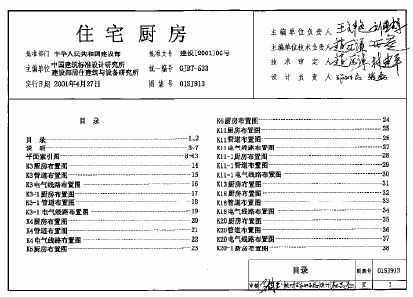 住宅厨房
批准部门 中华人民共和国建设部 批准文号 建设[2001]06号
主编单位 中国建筑标准设计研究所
建设部居住建筑与设备研究所 统一编号 GJBT-533
实行日期 2001年4月27日 图集号 01SJ913
主编单位负责人
主编单位技术负责人
技术审定人
设计负责人
目录
目录 1、2
说明 3~7
平面索引图
K3厨房布置图 14
K3管道布置图 15
K3电气线路布置图 16
K3-1厨房布置图 17
K3-1管道布置图 18
K3-1电气线路布置图 19
K4厨房布置图 20
K4管道布置图 21
K4电气线路布置图 22
K6厨房布置图 23
K6厨房布置图 24
K11厨房布置图 25
K11管道布置图 26
K11电气线路布置图 27
K11-1厨房布置图 28
K11-1管道布置图 29
K11-1电气线路布置图 30
K13厨房布置图 31
K18厨房布置图 32
K18管道布置图 33
K18电气线路布置图 34
K20厨房布置图 35
K20管道布置图 36
K20电气线路布置图 37
K20-1厨房布置图 38
目录 图集号 01SJ913
页 1